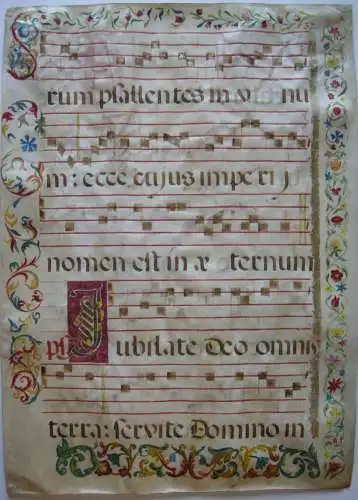 rum psallentes in u num
m: ecce cujus imperij
nomen est in æ ternum
ps Jubilate Deo omnis
terra: servite Domino in